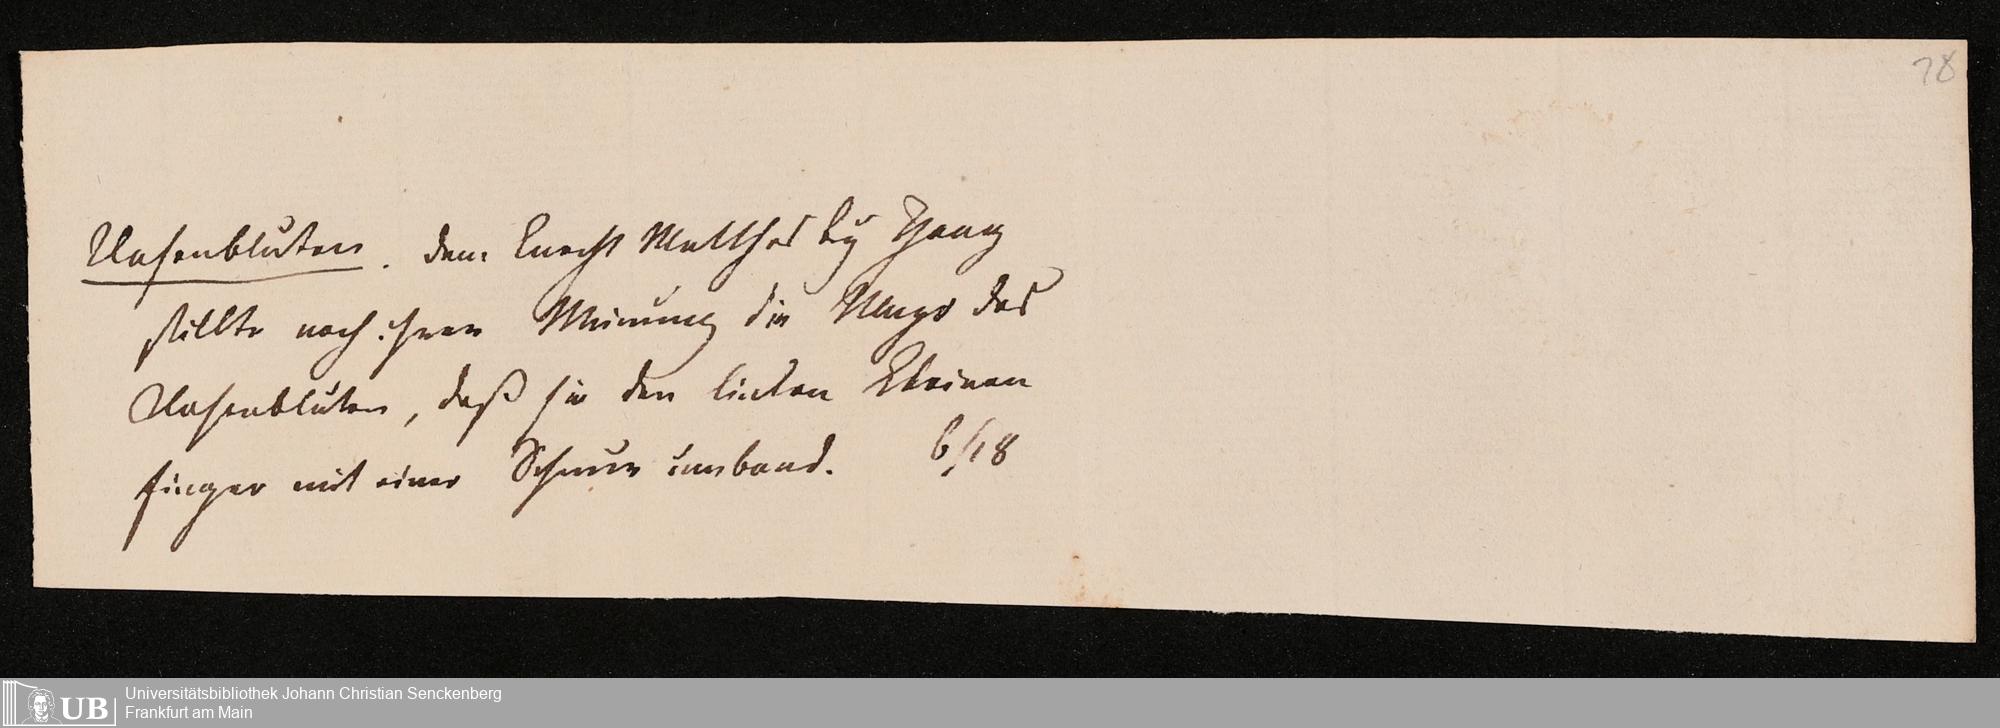 78
Nasenbluten. dem Knecht Matthes by
stillte nach ihrer Meinung die Magd das
Nasenbluten, daß sie den linken kleinen
finger mit einer Schnur umband. 6/18
UB Universitätsbibliothek Johann Christian Senckenberg
Frankfurt am Main